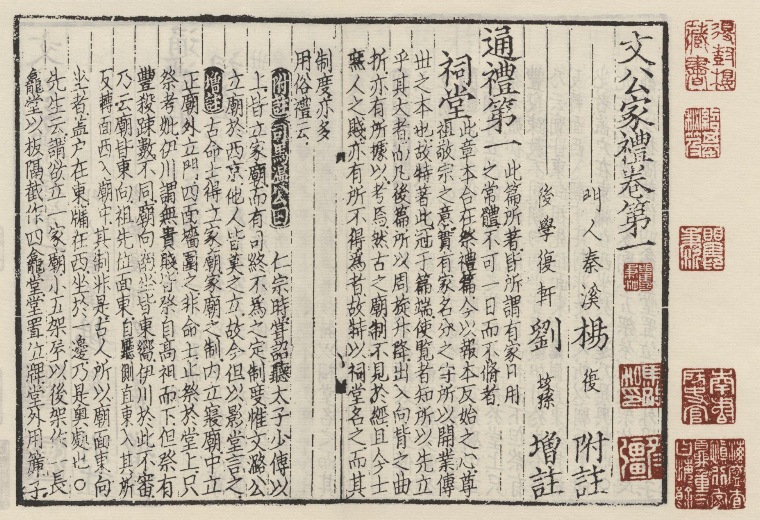 文公家禮卷第一
門人秦溪楊復附註
後學復軒劉垓孫增註
通禮第一 此篇所著皆所謂有家日用
之常體不可一日而不脩者
祠堂 此章本合在祭禮篇今以報本反始之心尊
祖敬宗之意實有家名分之守所以開業傳
世之本也故特著此冠于篇端使覽者知所以先立
乎其大者而凡後篇所以周旋升降出入向背之曲
折亦有所據以考焉然古之廟制不見於經且今士
庶人之賤亦有所不得為者故特以祠堂名之而其
制度亦多
用俗禮云
附註司馬溫公曰 仁宗時嘗詔聽太子少傅以
上皆立家廟而有司終不為之定制度惟文潞公
立廟於西京他人皆莫之立故今但以影堂言之
增註 古命士得立家廟家廟之制內立寢廟中立
正廟外立門四面墻圍之非命士止祭於堂上只
祭考妣伊川謂無貴賤皆祭自高祖而下但祭有
豐殺踈數不同廟向南坐皆東嚮伊川於此不審
乃云廟皆東向祖先位面東自廳側直東入其所
反轉面西入廟中其制非是古人所以廟面東向
坐者盖户在東牖在西坐於一邊乃是奧處也○
先生云謂欲立一家廟小五架屋以後架作一長
龕堂以板隔截作四龕堂堂置位牌堂外用簾子